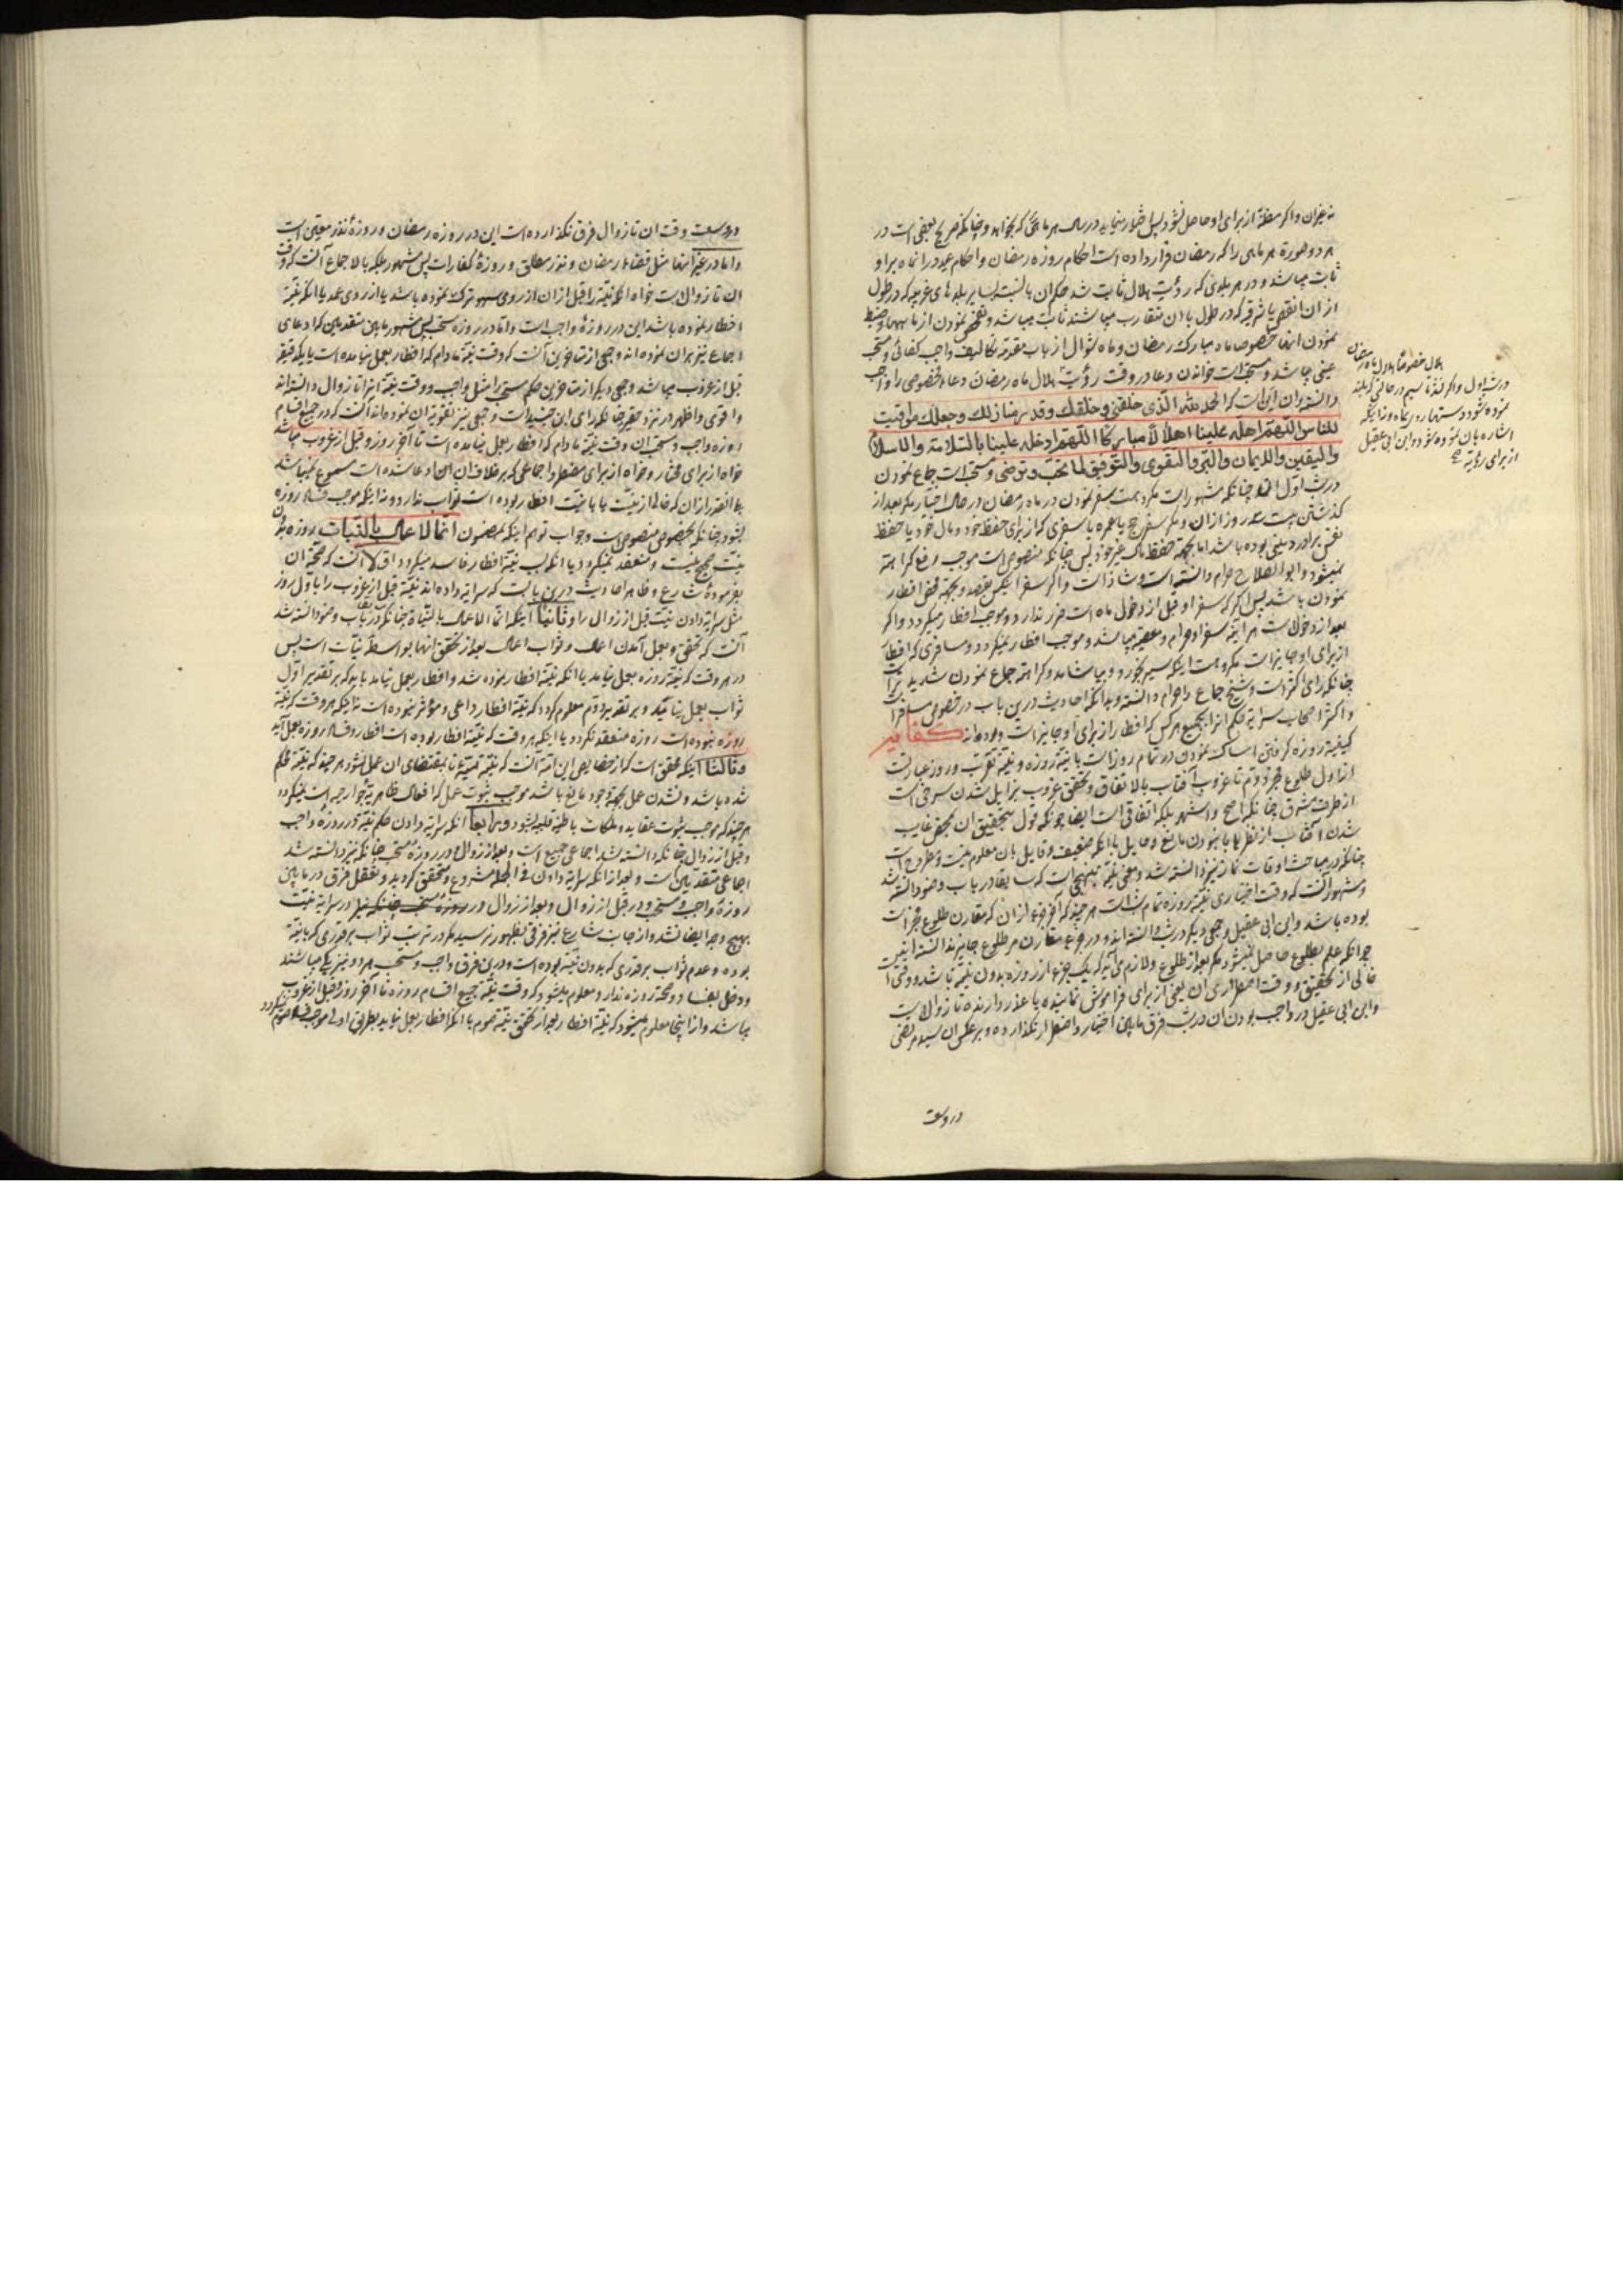 نه غیر آن و اگر مظنّهٔ از برای او حاصل نشود پس اختیار مینماید در سال هر ماهی که بخواهد و چنانکه صریح بعضی است در
هر دو صورة هر ماهی را که رمضان قرار داده است احکام روزه رمضان و احکام عید در انماه بر او
ثابت میباشد و در هر بلدی که رؤیت هلال ثابت شد حکم ان بالنسبة بسایر بلدهای غربیه که در طول
از ان انقص یا شرقیه که در طول با ان متقارب میباشند ثابت میباشد و تفحص نمودن از ماهها و ضبط
نمودن انها خصوصا ماه مبارک رمضان و ماه شوال از باب مقدمه تکالیف واجب کفائی و مستحب
عینی میباشد و مستحب است خواندن دعا در وقت رؤیت هلال ماه رمضان دعاء مخصوصی را واجب
دانسته و ان این است که الحمد لله الّذی خلقنی و خلقک و قدر منازلک و جعلک مواقیت
للناس اللّهمّ اهله علینا اهلالاً مبارکا اللّهمّ ادخله علینا بالسّلامة والاسلام
والیقین والایمان والبرّ والتقوی والتوفیق لما تحبّ و ترضی و مستحب است جماع نمودن
در شب اوّل انماه چنانکه مشهور است مکروهست سفر نمودن در ماه رمضان در حال اختیار مگر بعد از
گذشتن بیست سه روز از ان و مگر سفر حج یا عمره یا سفری که از برای حفظ خود و مال خود یا حفظ
نفس برادر دینی بوده باشد اما بجهة حفظ مال غیر خود پس چنانکه منصوص است موجب رفع کراهة
نمیشود و ابو الصلاح حرام دانسته است و شاذ است و اگر سفر اینکس بقصد و بجهة محض افطار
نمودن باشد پس اگر که سفر او قبل از دخول ماه است ضرر ندارد و موجب افطار میگردد و اگر
بعد از دخول است هر آینه سفر او حرام و معصیة میباشد و موجب افطار نمیگردد و مسافری که افطار
از برای او جایز است مکروهست اینکه سیر بخورد و بیاشامد و کراهة جماع نمودن شدیدتر است
چنانکه رای اکثر است و شیخ جماع را حرام دانسته و بدانکه احادیث درین باب در خصوص مسافر است
و اکثر اصحاب سرایة حکم انرا بجمیع هر کس که افطار از برای او جایز است داده‌اند
کیفیة روزه گرفتن امساک نمودن در تمام روز است با نیّة روزه و نیّة تقرّب و روز عبارتست
از اول طلوع فجر دوّم تا غروب آفتاب بالاتفاق و تحقق غروب بزایل شدن سرخی است
از طرف مشرق چنانکه اصح و اشهر بلکه اتفاقی است ایضا چونکه قول بتحقق ان بمحض غایب
شدن آفتاب از نظرها با نبودن مانع و حایل با انکه ضعیف و قایل بان معلوم نیست و مطروح است
چنانکه در مباحث اوقات نماز نیز دانسته شد و معنی نیّة بنهجی است که سابقا در باب وضو دانسته شد
و مشهور آنست که وقت اختیاری نیّة روزه تمام شب است هر چند که آخر جزو از ان که مقارن طلوع فجر است
بوده باشد و ابن ابی عقیل وجهی دیگر در شب دانسته‌اند و در جزو مقارن مر طلوع جایز ندانسته از نیّت
چرا که علم بطلوع حاصل نمیشود مگر بعد از طلوع و لازم می‌آید که یک جزو از روزه بدون نیّة باشد و وقتی است
خالی از تحقیق و وقت اضطراری ان یعنی از برای فراموش نماینده یا عذر دارنده تا زوالست
و ابن ابی عقیل در واجب بودن ان در شب فرق مابین اختیار و اضطرار نگذارده و بر عکس ان سید مرتضی
در وسعت
هلال خصوصا هلال ماه رمضان
در شب اول و اگر
نموده شود و دستها
اشاره بان نموده نشود و ابن ابی عقیل
از برای رؤیة صح
در وسعت وقت ان تا زوال فرق نگذارده است این در روزه رمضان و روزهٔ نذر معیّن است
و اما در غیر انها مثل قضاء رمضان و نذر مطلق و روزهٔ کفارات پس مشهور بلکه بالاجماع آنست که وقت
ان تا زوالست خواه انکه نیّة را قبل از ان از روی سهو ترک نموده باشد یا از روی عمد یا انکه نیّة
افطار نموده باشد این در روزهٔ واجب است و اما در روزه مستحب پس مشهور مابین متقدمین که ادعای
اجماع نیز بران نموده‌اند وجهی از متاخرین آنست که وقت نیّة مادام که افطار بعمل نیامده است تا یکدقیقه
قبل از غروب میباشد وجهی دیگر از متاخرین حکم مستحب را مثل واجب و وقت نیّة انرا تا زوال دانسته‌اند
و اقوی و اظهر در نزد حقیر چنانکه رای ابن جنید است وجهی نیز تقویة ان نموده‌اند آنست که در جمیع اقسام
روزه واجب و مستحب ان وقت نیّة مادام که افطار بعمل نیامده است تا آخر روز و قبل از غروب میباشد
خواه از برای مختار و خواه از برای مضطر و اجماعی که بر خلاف ان ادعا شده است مسموع نمیباشد
بلی انقدر از ان که خالی از نیّت یا با نیّت افطار بوده است ثواب ندارد و نه اینکه موجب فساد روزه
بشود چنانکه بخصوص منصوص است و جواب توهم اینکه بمضمون انّما الاعمال بالنّیات روزه بدون
نیّت صحیح نیست و منعقد نمیگردد یا انکه بسبب نیّة افطار فاسد میگردد اوّلا آنست که صحّة ان
بفرمودهٔ شارع و ظاهر احادیث درین بابست که سرایة داده‌اند نیّة قبل از غروب را باوّل روز
مثل سرایة دادن نیّت قبل از زوال را و ثانیا اینکه انّما الاعمال بالنیّات چنانکه در باب وضو دانسته شد
آنست که تحقق و بعمل آمدن اعمال و ثواب اعمال بعد از تحقق انها بواسطهٔ نیّات است پس
در هر وقت که نیّة روزه بعمل نیامد یا انکه نیّة افطار نموده شد و افطار بعمل نیامد باید که بر تقدیر اوّل
ثواب بعمل نیاید و بر تقدیر دوّم معلوم گردد که نیّة افطار داعی و مؤثر نبوده است نه اینکه هر وقت که نیّة
روزه نبوده است روزه منعقد نگردد یا اینکه هر وقت که نیّة افطار بوده است افطار و فساد روزه بعمل آید
و ثالثا اینکه محقق است که از خصایص این امّة آنست که نیّة معصیة تا بمقتضای ان عمل نشود هر چند که نیّة محکم
شده باشد و نشدن عمل بجهة وجود مانع باشد موجب ثبوت عمل که افعال ظاهریهٔ جوارحیه است نمیگردد
هر چند که موجب ثبوت عقاید و ملکات باطنیه قلبیه بشود و رابعا انکه سرایة دادن حکم نیّة در روزه واجب
و قبل از زوال چنانکه دانسته شد اجماعی جمیع است و بعد از زوال و در روزهٔ مستحب چنانکه نیز دانسته شد
اجماعی متقدمین است و بعد از انکه سرایة دادن فی الجمله مشروع و متحقق گردید و تعقل فرق در مابین
روزهٔ واجب و مستحب و در قبل از زوال و بعد از زوال در روزهٔ مستحب چنانکه نیز در سرایة نیّت
بهیچ وجه ایضا نشد و از جانب شارع نیز فرقی بظهور نرسید مگر در ترتب ثواب بر قدری که با نیّة
بوده و عدم ثواب بر قدری که بدون نیّة بوده است و درین فرق واجب و مستحب هر دو نیز یکی میباشند
و دخل بفساد و صحّة روزه ندارد و معلوم میشود که وقت نیّة جمیع اقسام روزه تا آخر روز و قبل از غروب
میباشد و از اینجا معلوم میشود که نیّة افطار بعد از تحقق نیّة صوم با انکه افطار بعمل نیاید بطریق اولی موجب فساد صوم نمیگردد